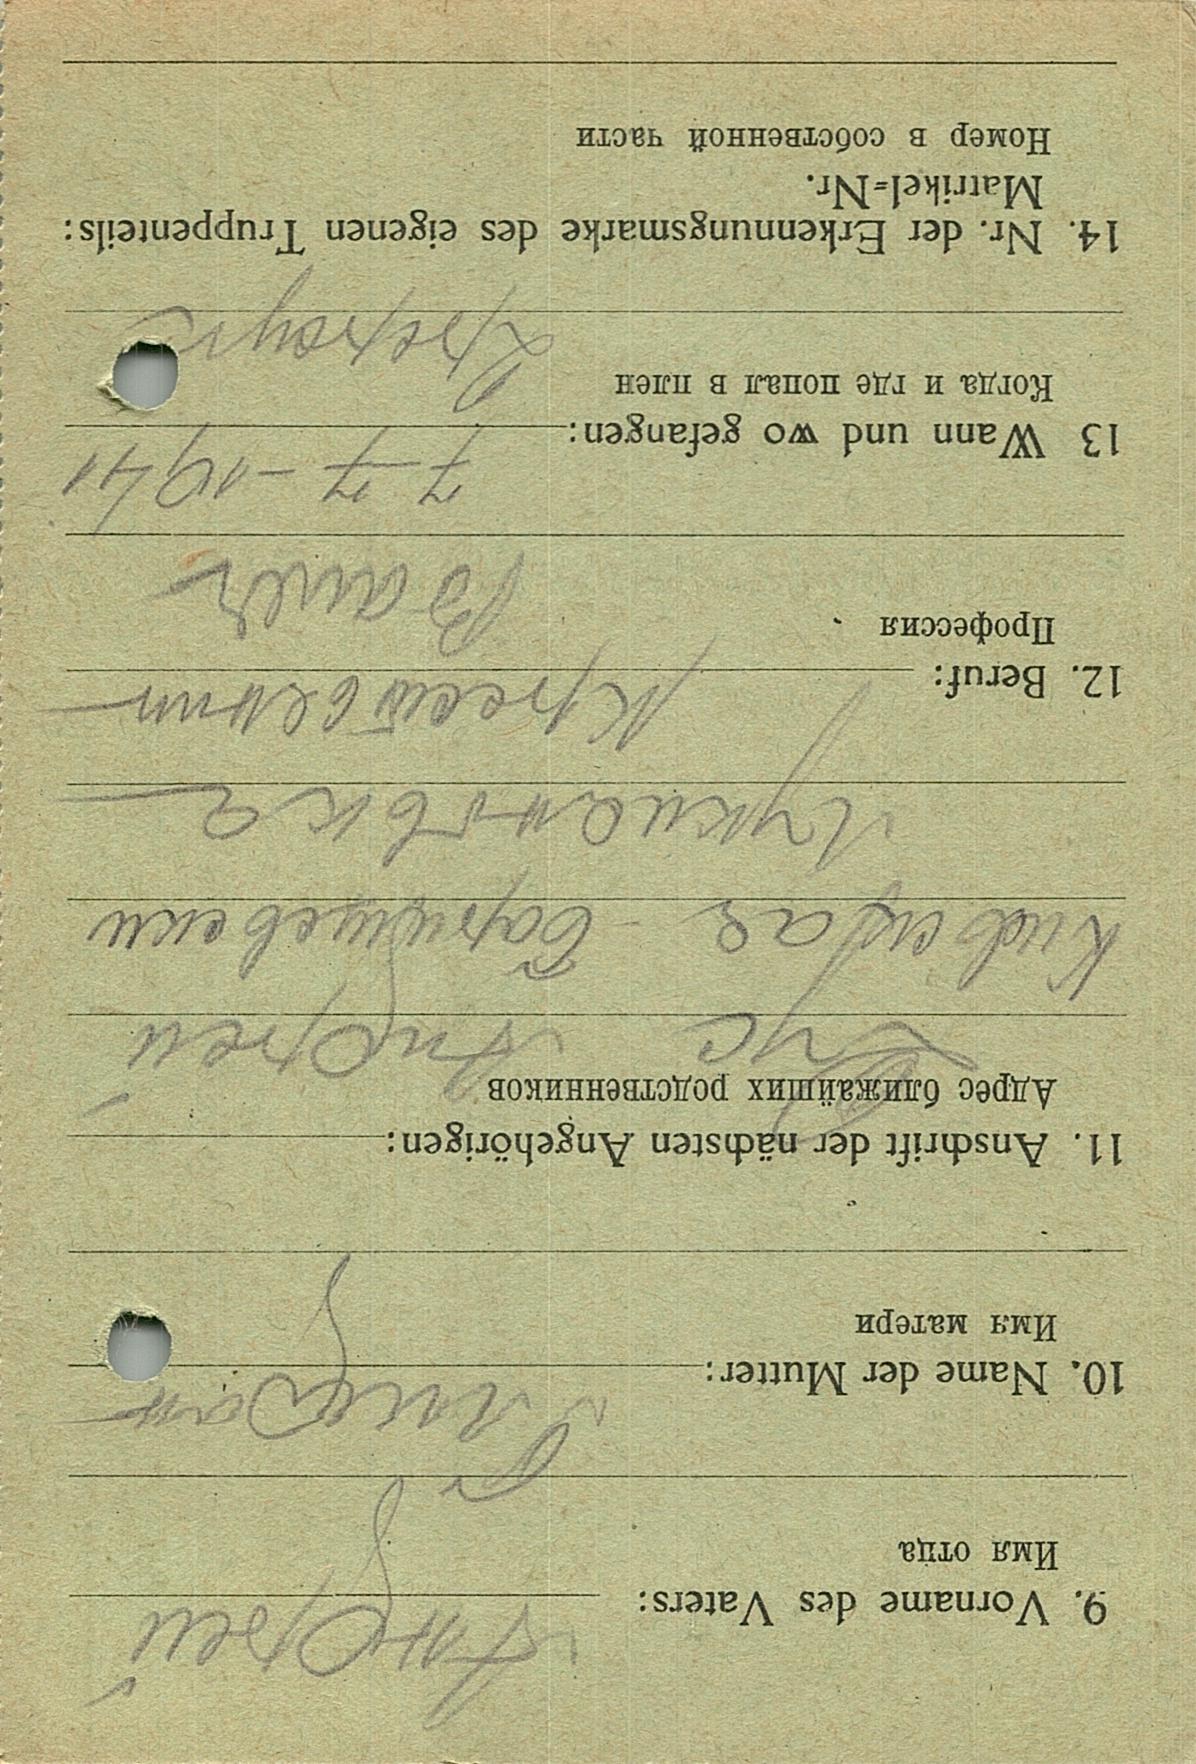 9. Vorname des Vaters: Андрей
Имя отца
10. Name der Mutter:
Имя матери
11. Anschrift der nächsten Angehörigen:
Адрес ближайших родственников
Андрей
Киевская - Баришевски
Лукиановка
12. Beruf:
Профессия
13 Wann und wo gefangen: 7-7-1941
Когда и где попал в плен
14. Nr. der Erkennungsmarke des eigenen Truppenteils:
Matrikel=Nr.
Номер в собственной части